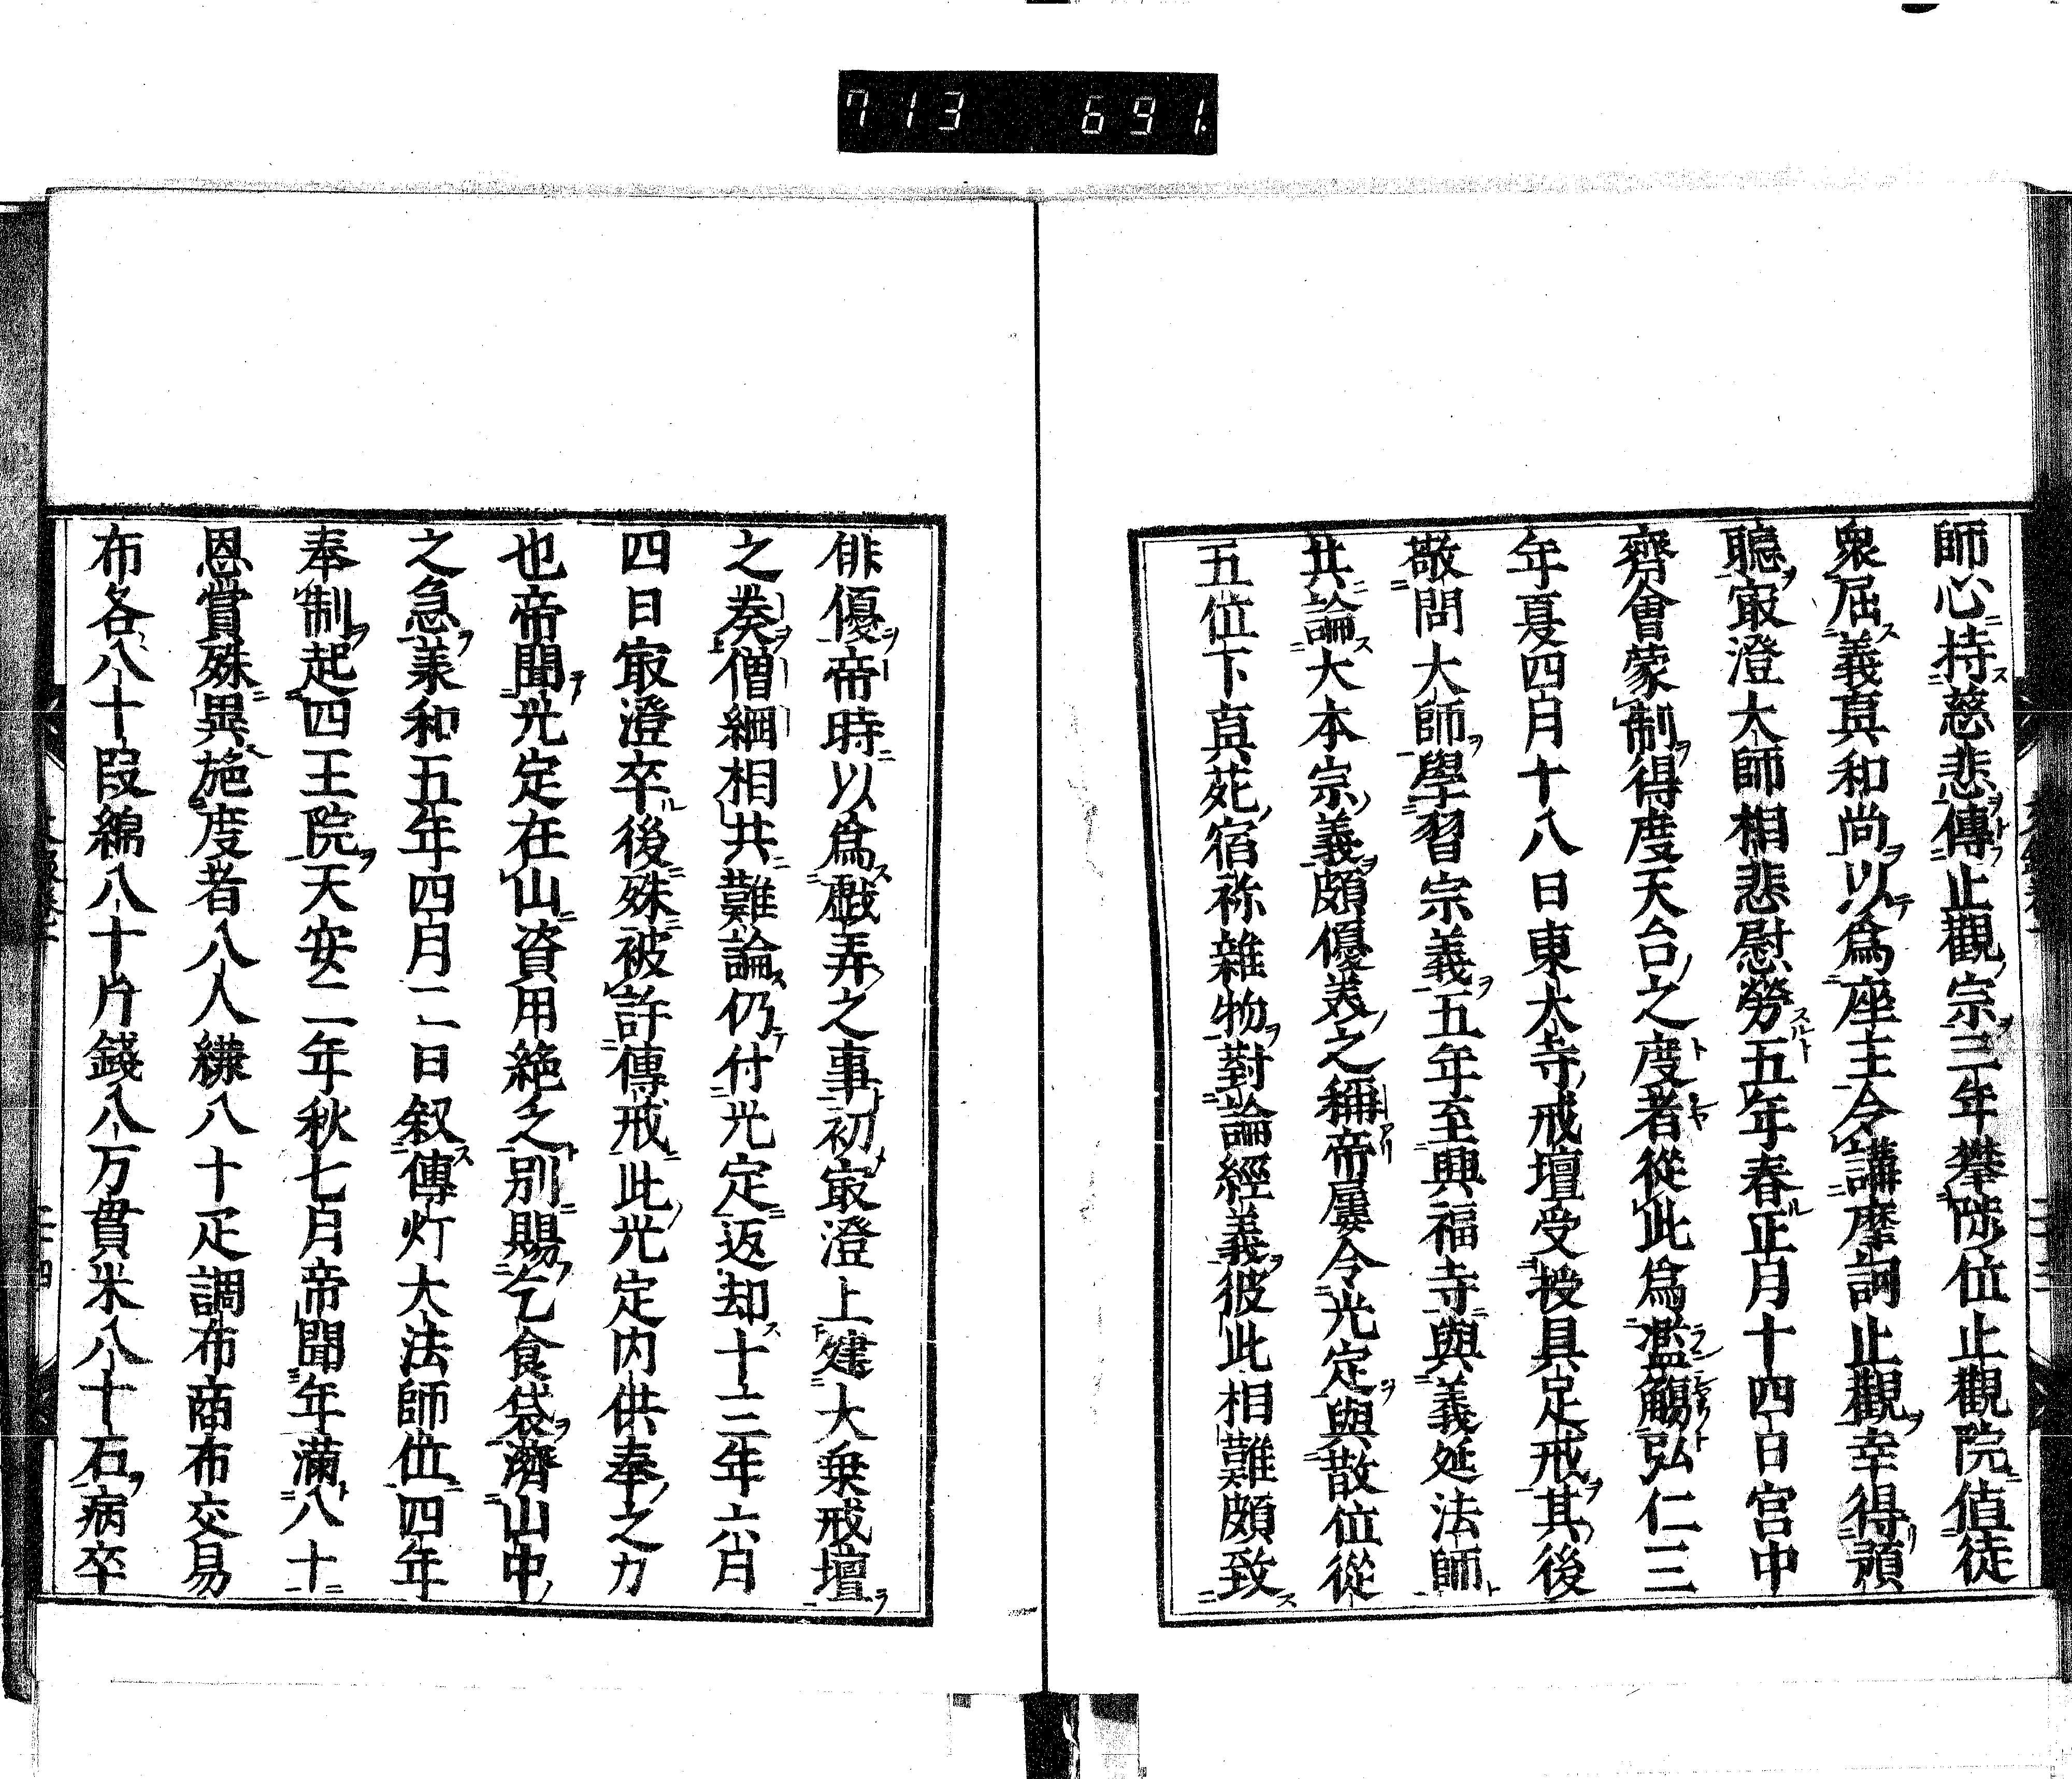 713 691.
師心持慈悲傳止觀宗三年攀陟位止觀院值徒
衆屈義真和尚以爲座主令講摩訶止觀幸得預
聽㝡澄大師相悲慰勞五年春正月十四日宮中
齊會蒙制得度天台之度者從此爲濫觴弘仁三
年夏四月十八日東大寺戒壇受授具足戒其後
敬問大師學習宗義五年至興福寺與義延法師
共論大本宗義頗優美之稱帝屢令光定與散位從
五位下真菀宿祢雜物對論經義彼此相難頗致
俳優帝時以爲戲弄之事初㝡澄上建大乗戒壇
之奏僧綱相共難論仍付光定返却十三年六月
四日㝡澄卒後殊被許傳戒此光定内供奉之力
也帝聞光定在山資用絶乏別賜乞食袋濟山中
之急羕和五年四月二日叙傳灯大法師位四年
奉制起四王院天安二年秋七月帝聞年滿八十
恩賞殊異施度者八人縑八十疋調布商布交易
布各八十段綿八十片錢八万貫米八十石病卒